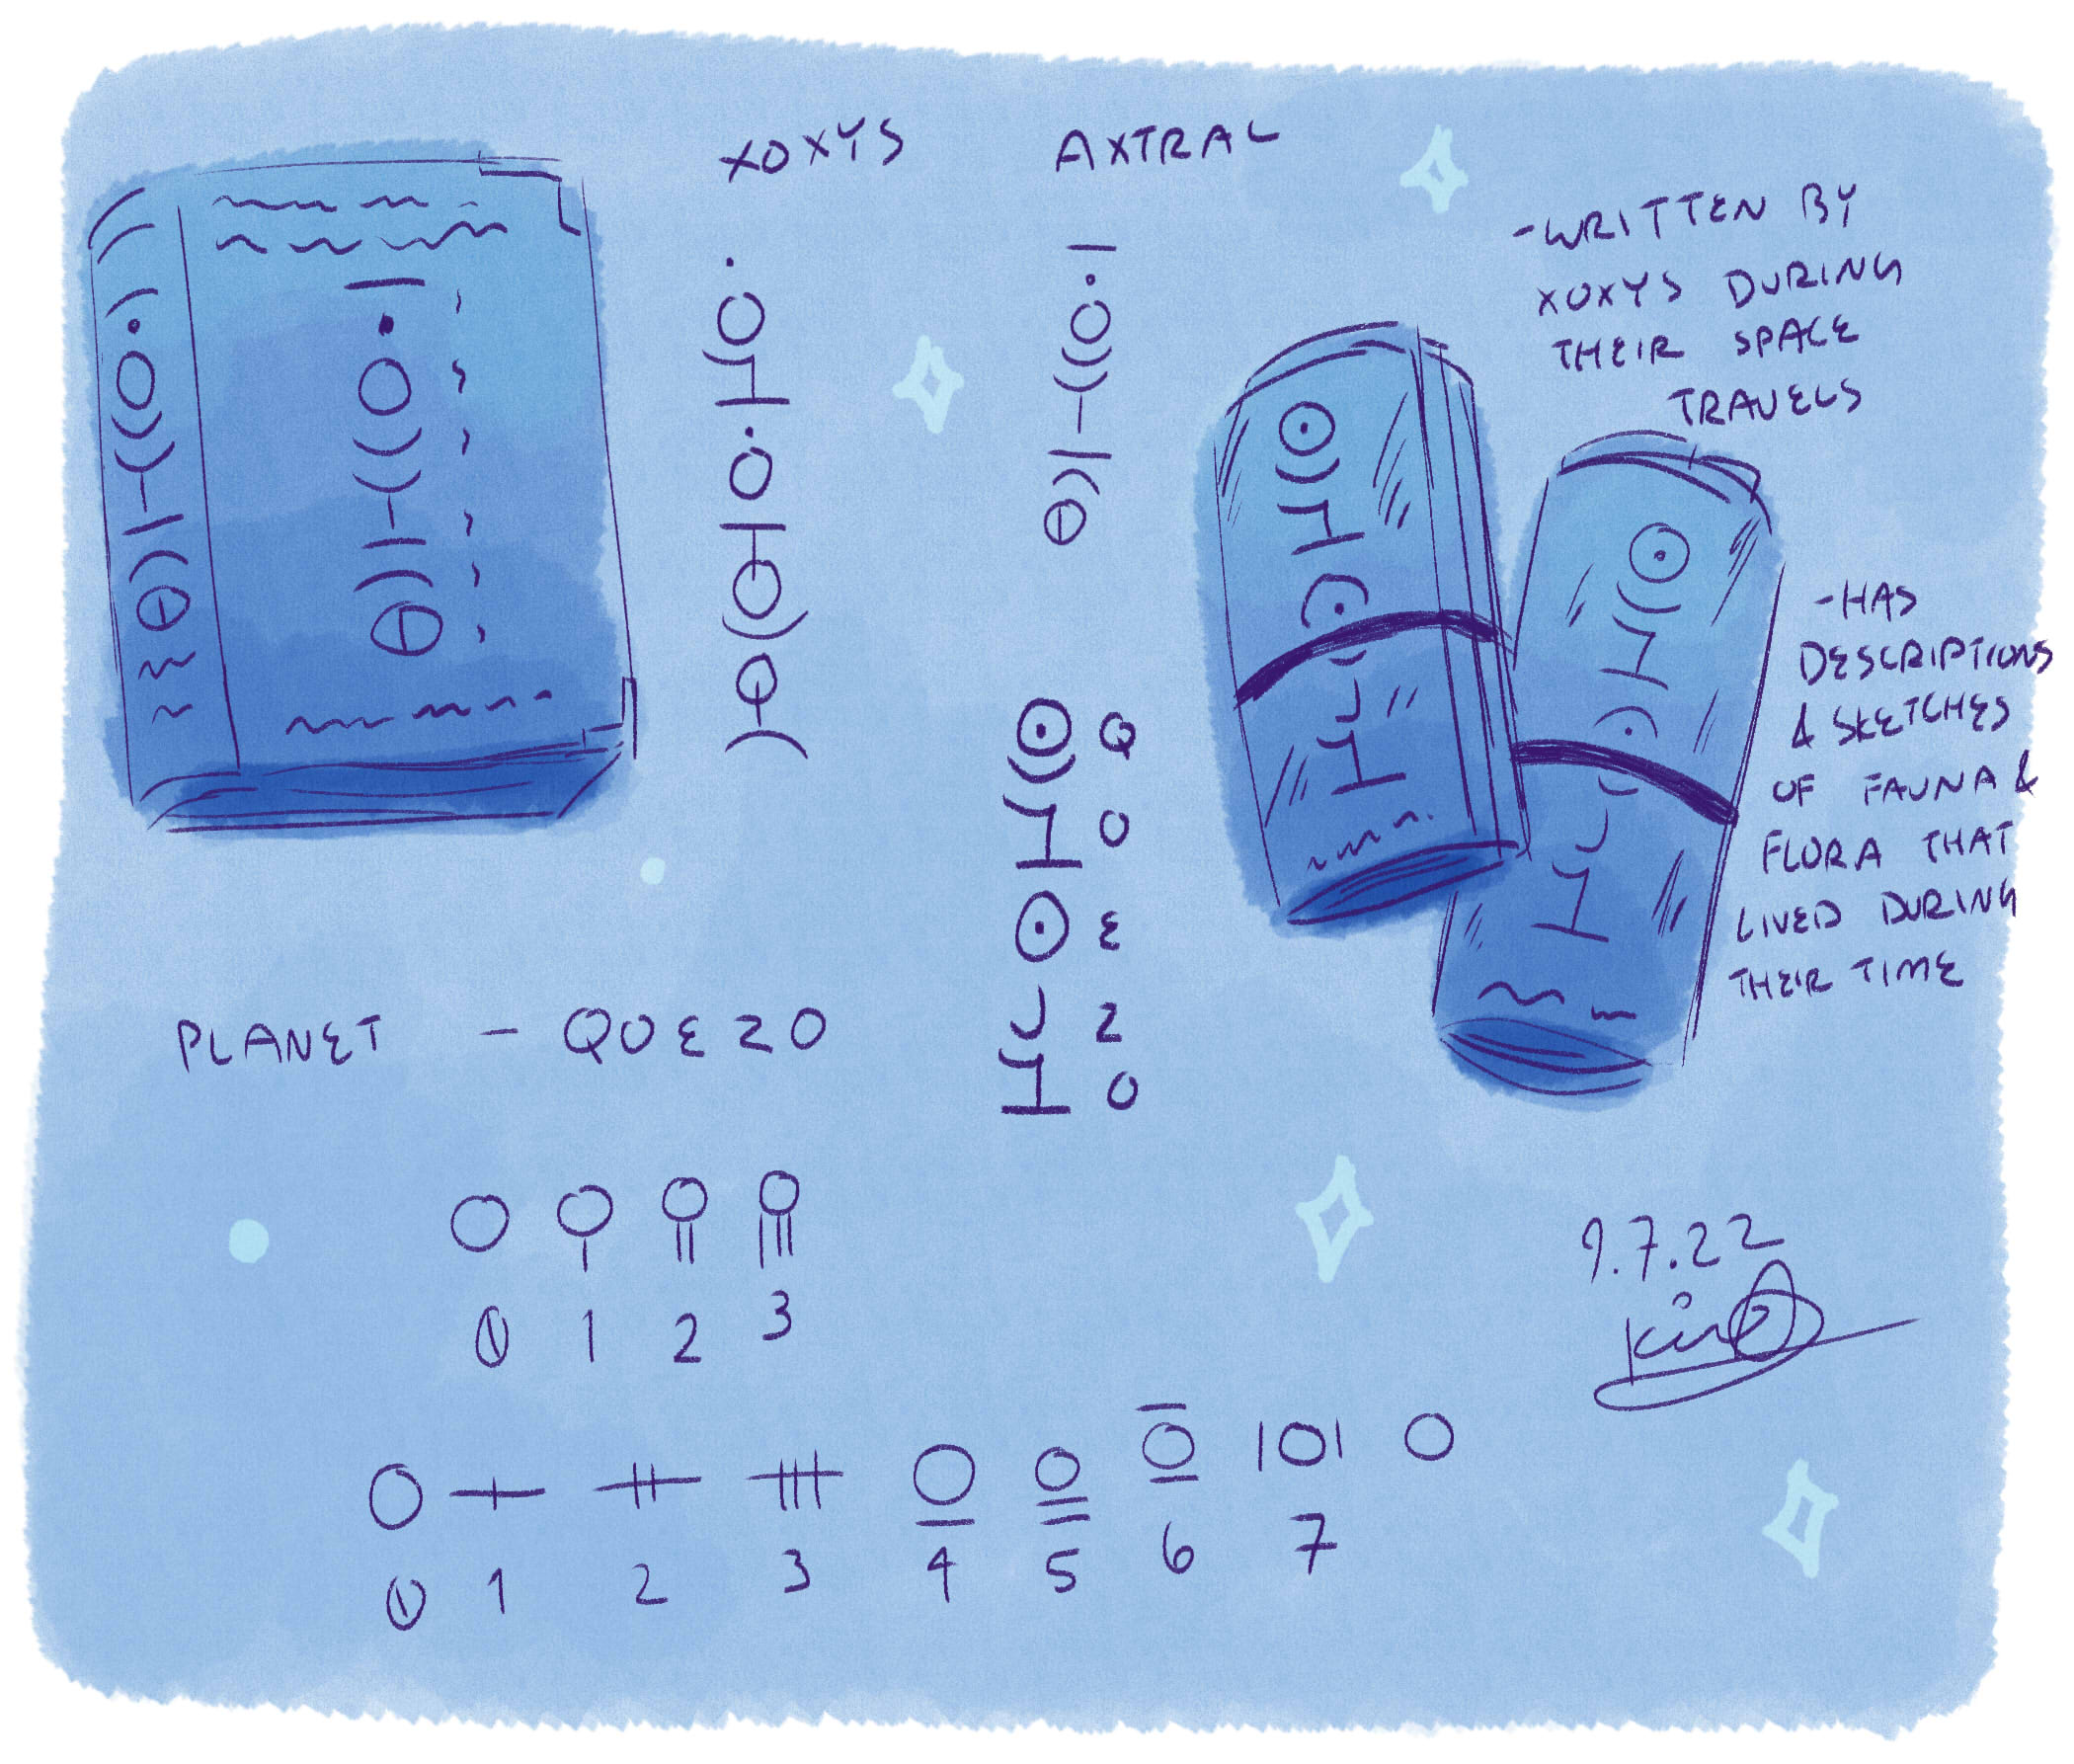 XOXYS
AXTRAL
-WRITTEN BY
XOXYS DURING
THEIR SPACE
TRAVELS
-HAS
DESCRIPTIONS
& SKETCHES
OF FAUNA &
FLORA THAT
LIVED DURING
THEIR TIME
Q
O
E
Z
O
PLANET - QOEZO
0 1 2 3
0 1 2 3 4 5 6 7
9.7.22